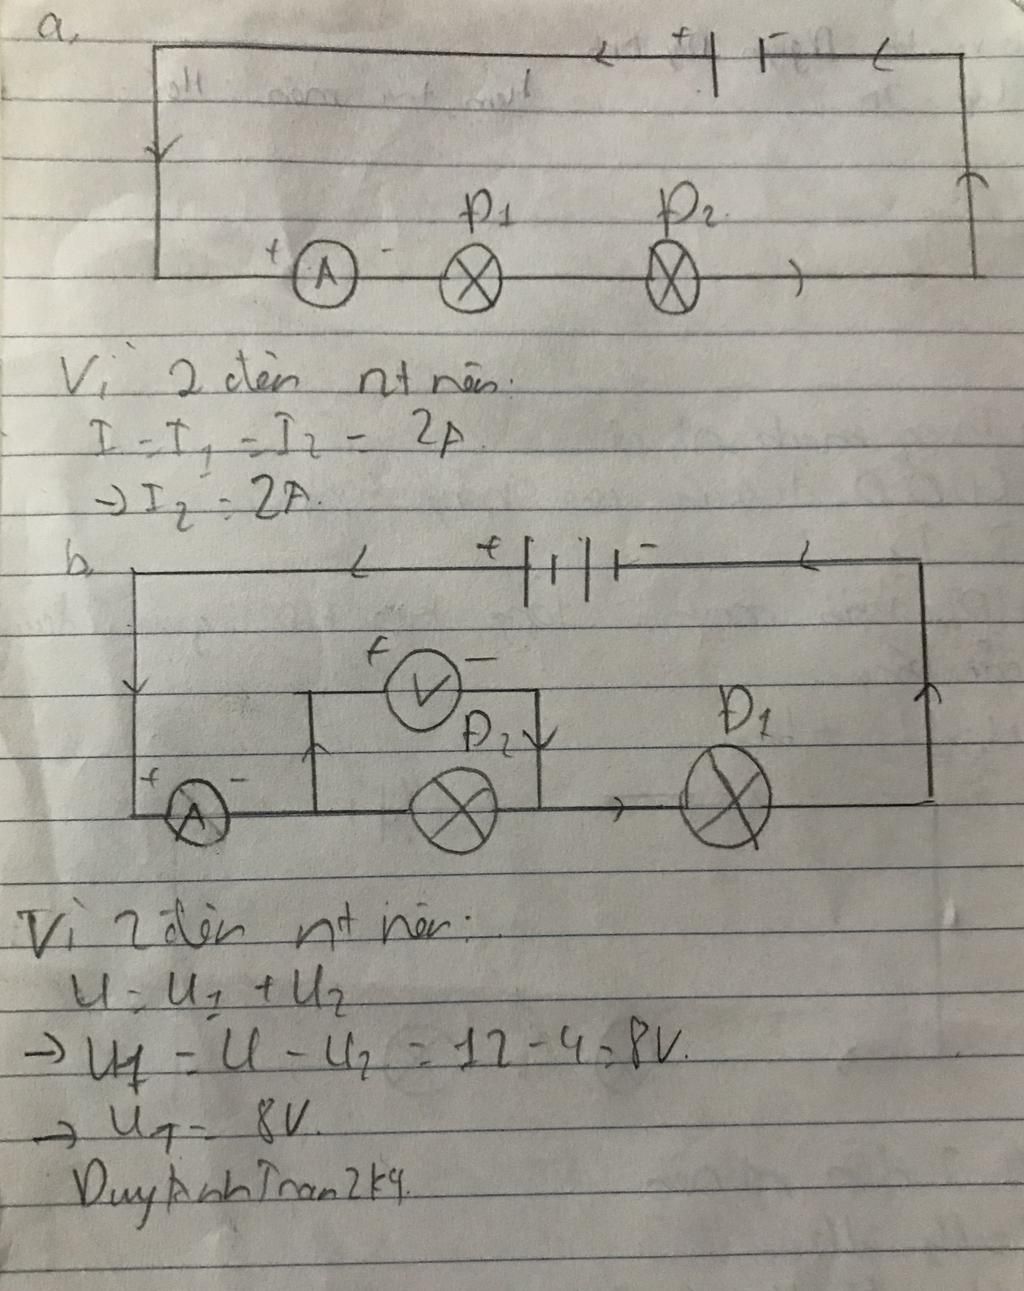 a,
+ -
+ A -
Đ1
Đ2
Vì 2 đèn nt nên:
I = I1 = I2 = 2A.
→ I2 = 2A.
b,
+ -
+ V -
Đ2
Đ1
+ A -
Vì 2 đèn nt nên:
U = U1 + U2
→ U1 = U - U2 = 12 - 4 = 8V.
→ U1 = 8V.
DuyAnhTran2k9.